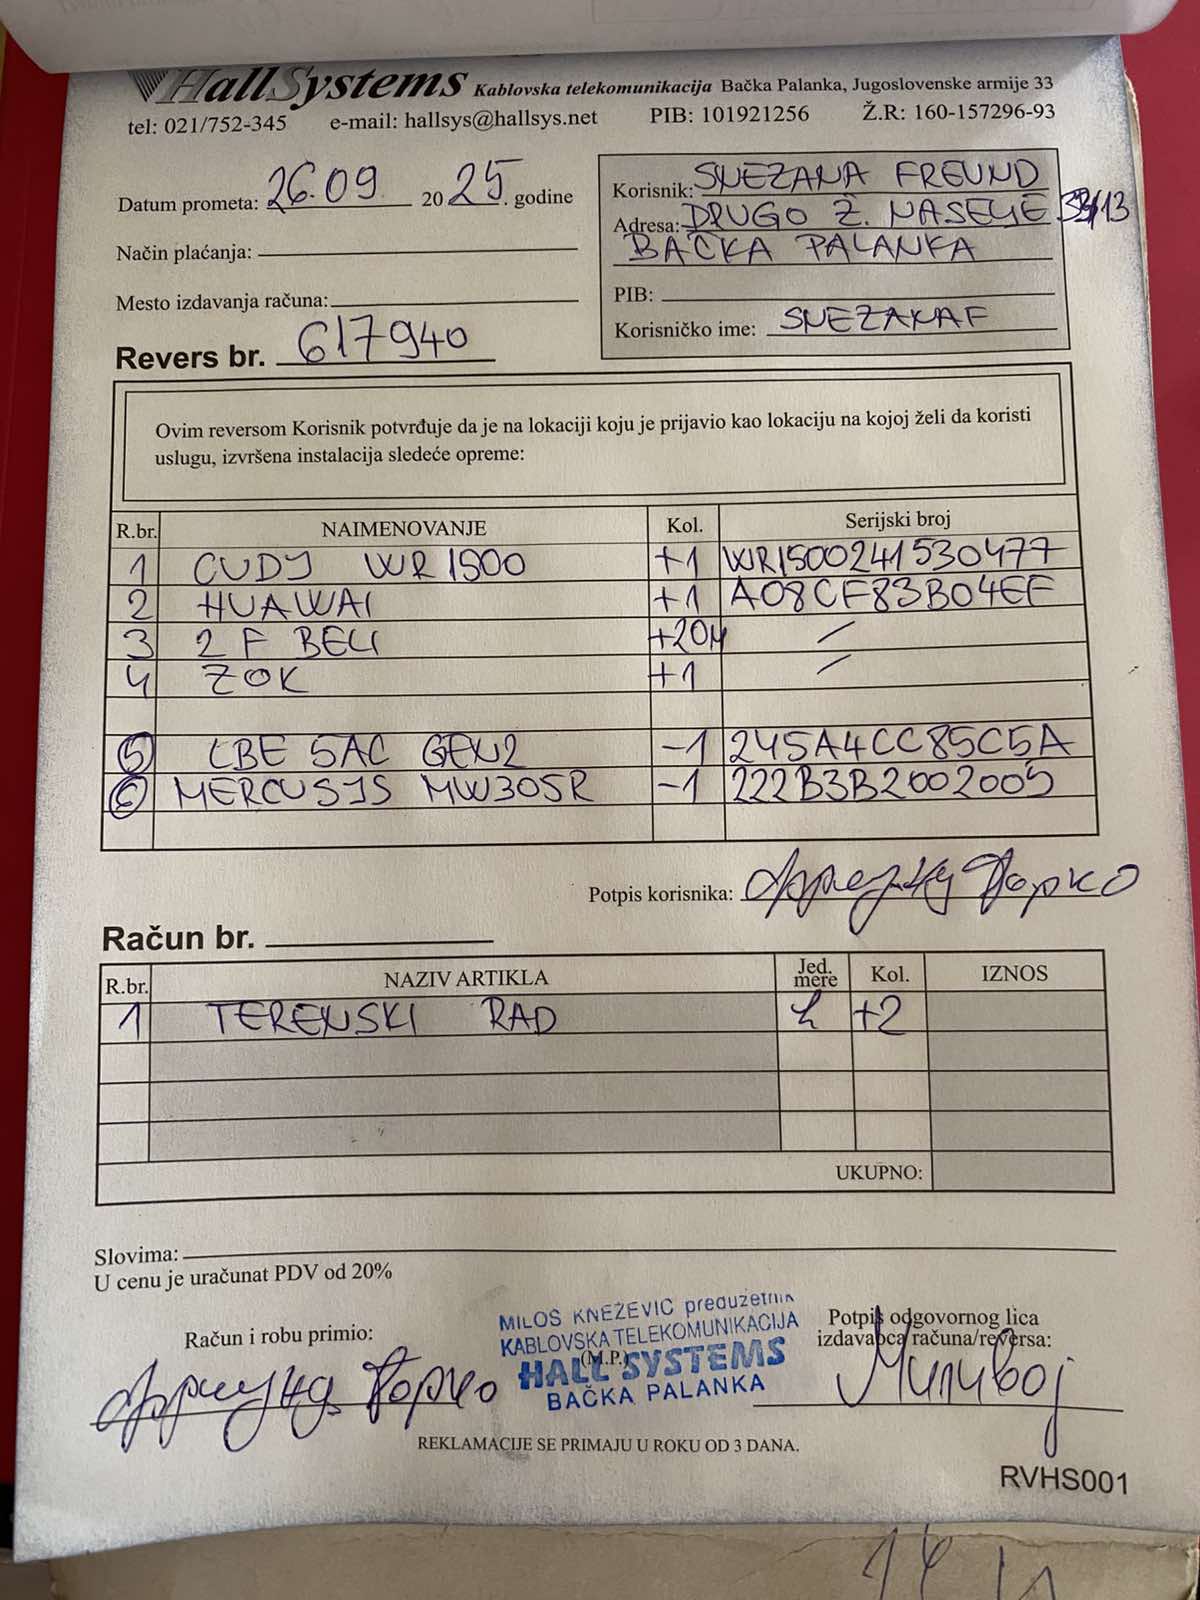 HallSystems Kablovska telekomunikacija Bačka Palanka, Jugoslovenske armije 33
tel: 021/752-345 e-mail: hallsys@hallsys.net PIB: 101921256 Ž.R: 160-157296-93
Datum prometa: 26.09. 2025. godine
Način plaćanja:
Mesto izdavanja računa:
Revers br. 617940
Korisnik: SNEZANA FREUND
Adresa: DRUGO Ž. NASELJE /13
BAČKA PALANKA
PIB:
Korisničko ime: SNEZANAF
Ovim reversom Korisnik potvrđuje da je na lokaciji koju je prijavio kao lokaciju na kojoj želi da koristi
uslugu, izvršena instalacija sledeće opreme:
R.br. NAIMENOVANJE Kol. Serijski broj
1 CUDY WR 1500 +1 WR1500241530477
2 HUAWAI +1 A08CF83B04EF
3 2 F BELI +20M /
4 ZOK +1 /
5 LBE 5AC GEN2 -1 245A4CC85C5A
6 MERCUSYS MW305R -1 222B3B2002005
Potpis korisnika:
Račun br.
R.br. NAZIV ARTIKLA Jed. mere Kol. IZNOS
1 TERENSKI RAD h +2
UKUPNO:
Slovima:
U cenu je uračunat PDV od 20%
Račun i robu primio:
MILOŠ KNEŽEVIĆ preduzetnik
KABLOVSKA TELEKOMUNIKACIJA
(M.P.)
HALL SYSTEMS
BAČKA PALANKA
Potpis odgovornog lica
izdavaoca računa/reversa:
REKLAMACIJE SE PRIMAJU U ROKU OD 3 DANA.
RVHS001